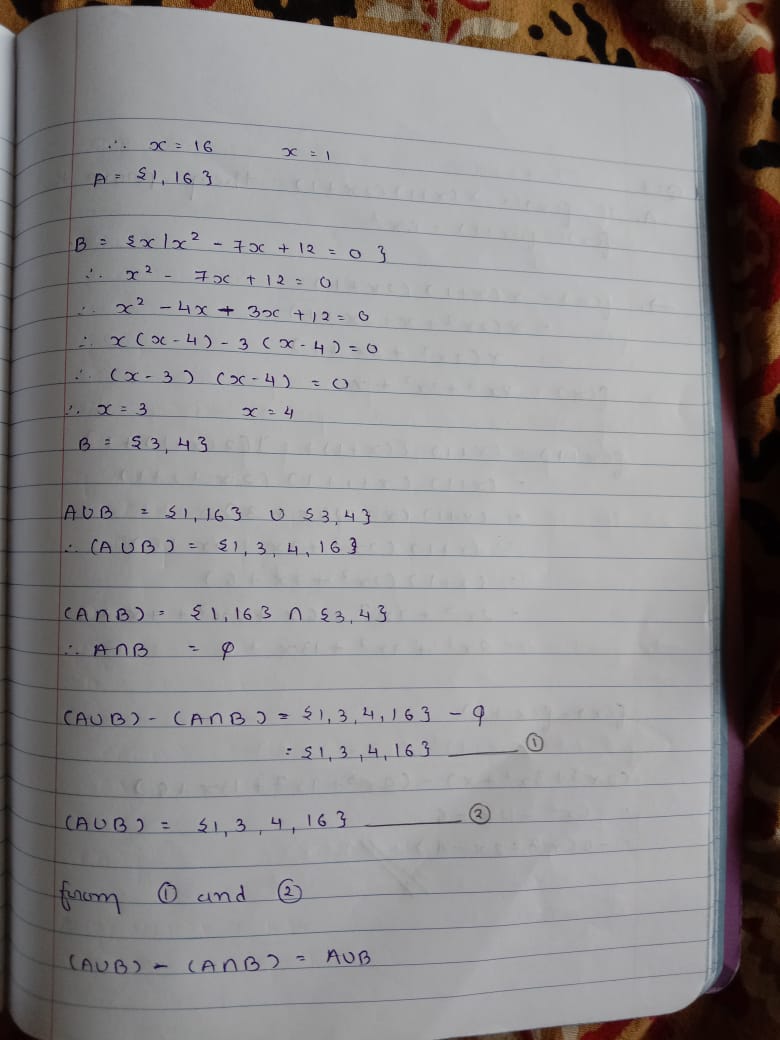 ∴ x = 16 x = 1
A = {1, 16}
B = {x | x² - 7x + 12 = 0 }
∴ x² - 7x + 12 = 0
∴ x² - 4x + 3x + 12 = 0
∴ x (x - 4) - 3 (x - 4) = 0
∴ (x - 3) (x - 4) = 0
∴ x = 3 x = 4
B = {3, 4}
A∪B = {1, 16} ∪ {3, 4}
∴ (A∪B) = {1, 3, 4, 16}
(A∩B) = {1, 16} ∩ {3, 4}
∴ A∩B = φ
(A∪B) - (A∩B) = {1, 3, 4, 16} - φ
= {1, 3, 4, 16} ——— ①
(A∪B) = {1, 3, 4, 16} ——— ②
from ① and ②
(A∪B) - (A∩B) = A∪B